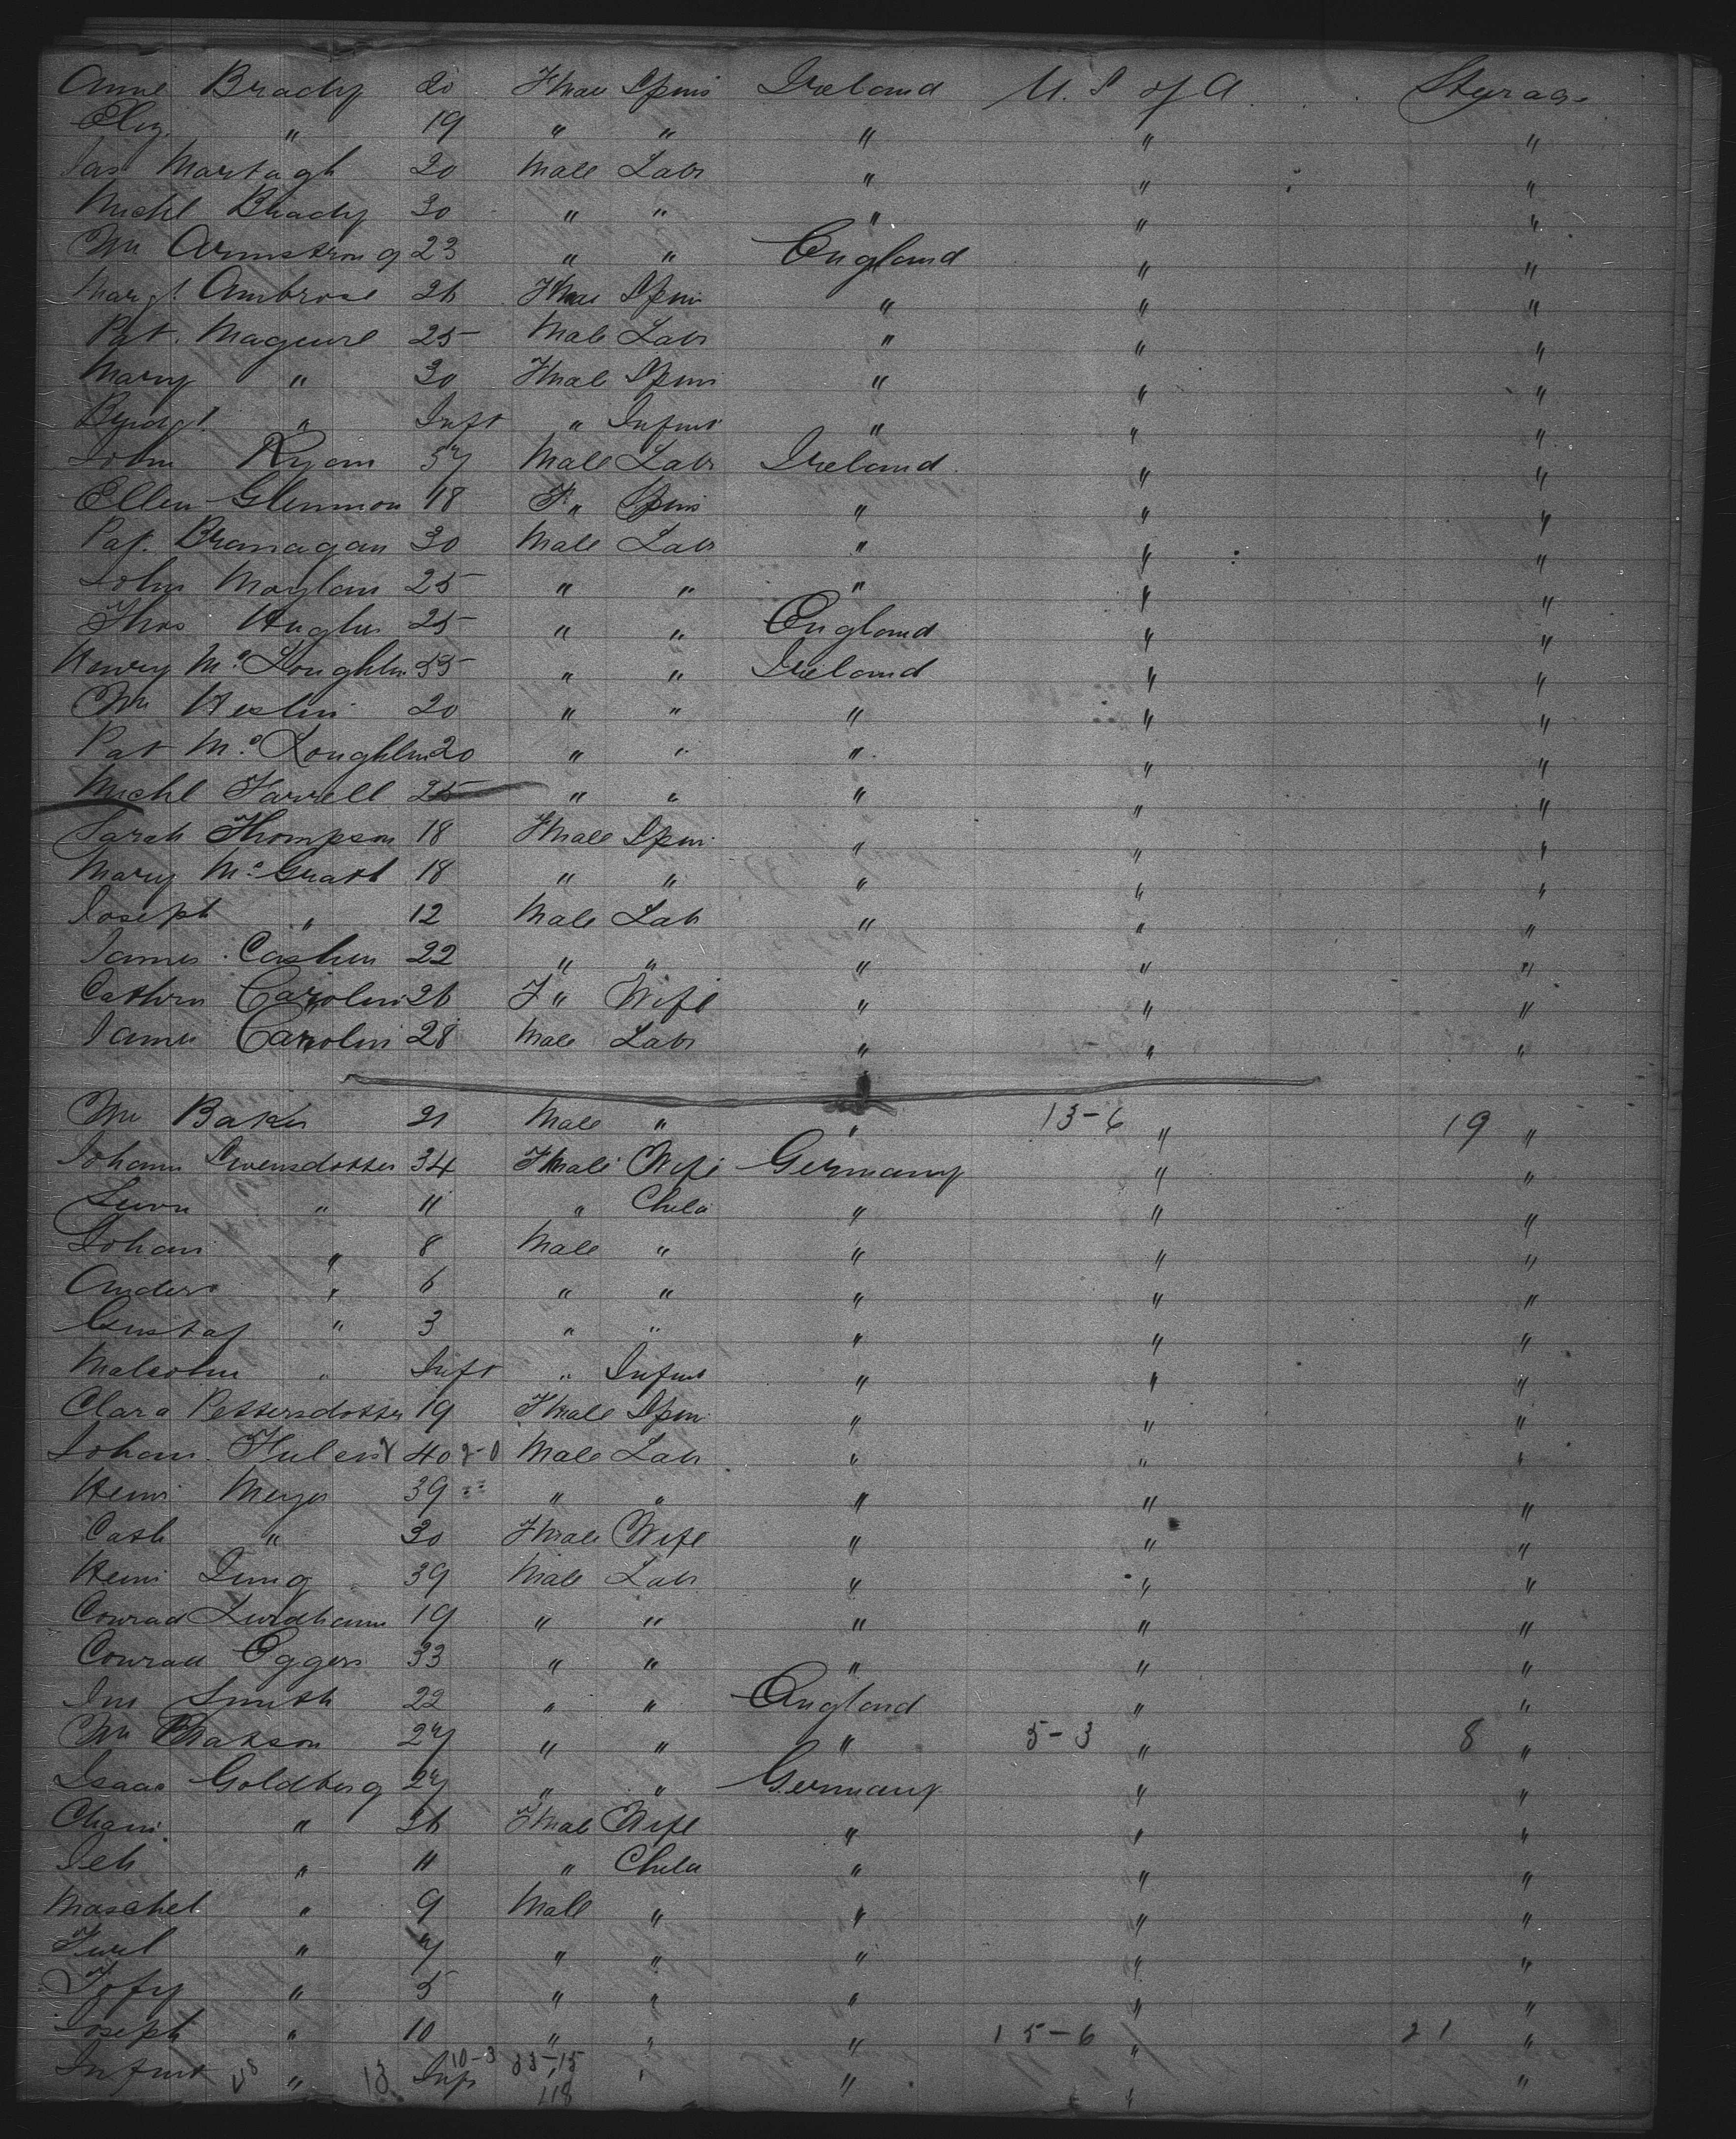 Anne Brady 20 Fmale Spins Ireland U. S of A. Styrage
Eliz. " 19 " " " " "
Jas Martagh 20 Male Labr " " "
Michl Brady 30 " " " " "
Wm Armstrong 23 " " England " "
Margt. Ambrose 26 Fmale Spin " " "
Pat. Maguire 25 Male Labr " " "
Mary " 30 Fmale Spins " " "
" Inft " Infant " " "
John Ryan 57 Male Labr Ireland " "
Ellen Glennon 18 F" Spins " " "
Pat. Branagan 30 Male Labr " " "
John Moylan 25 " " " " "
Thos Hughes 25 " " England " "
Henry Mc Loughlin 55 " " Ireland " "
Wm Heslin 20 " " " " "
Pat Mc Loughlin 20 " " " " "
Michl Farrell 25 " " " " "
Sarah Thompson 18 Fmale Spin " " "
Mary Mc Grath 18 " " " " "
Joseph " 12 Male Lab " " "
James Cashen 22 " " " " "
Cathrn Carolin 26 F" Wife " " "
James Carolin 28 Male Labr " " "
Wm Baker 21 Male " " 13-6 " 19 "
Johann Swensdotter 34 Fmale Wife Germany " "
" 11 " Child " " "
Johan " 8 Male " " " "
Anders " 6 " " " " "
Gustaf " 3 " " " " "
Malcolm " Inft " Infant " " "
Clara Pettersdotter 19 Fmale Spin " " "
Johan 40 Male Labr " " "
Henri Meyer 39 " " " " "
Cath " 30 Fmale Wife " " "
Henri Jung 39 Male Labr " " "
Conrad 19 " " " " "
Conrad Eggers 33 " " " " "
Jno Smith 22 " " England " "
Wm 27 " " " 5-3 " 8 "
Isaac Goldberg 27 " " Germany " "
Chani " 26 Fmale Wife " " "
" 11 " Child " " "
Maschel " 9 Male " " " "
" 7 " " " " "
" 5 " " " " "
Joseph " 10 " " " 15-6 " 21 "
Infant " 13 Inft 10-3 33-15 " " " "
118